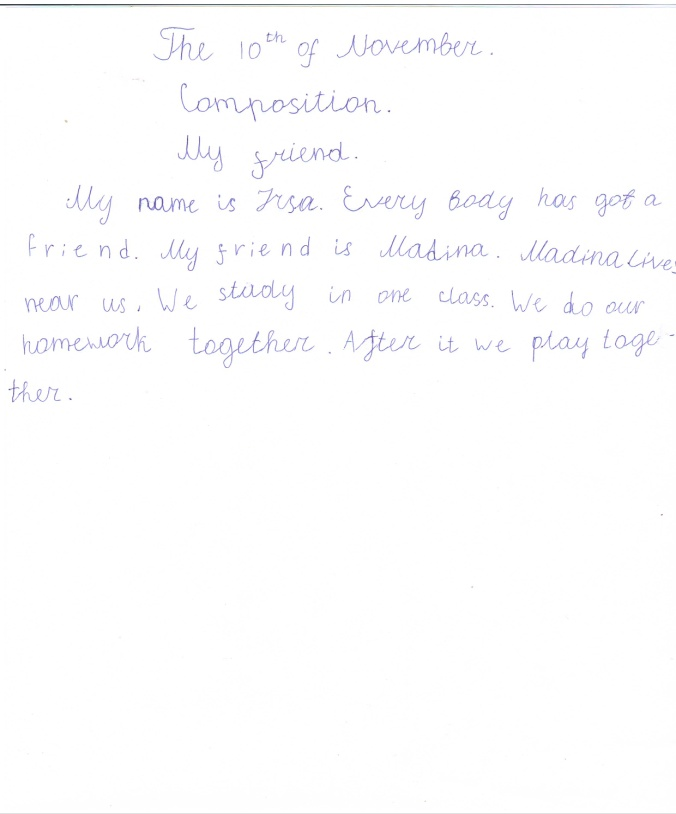 The 10th of November.
Composition.
My friend.
My name is Irsa. Every body has got a
friend. My friend is Madina. Madina lives
near us. We study in one class. We do our
homework together. After it we play toge-
ther.